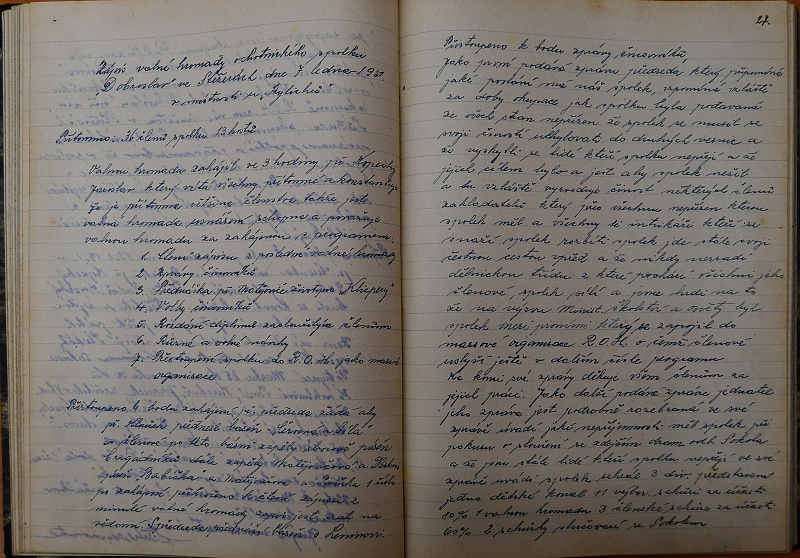 Zápis valné hromady ochotnického spolku
"Dobroslav" ve dne 7. ledna 1951
v místnosti p.
Přítomno: 36 členů spolku 13 hostů
Valnou hromadu zahájil ve 3 hodiny př. Kopecký
Jaroslav který vítá všechny přítomné a konstatuje
že je přítomna většina členstva takže jest
valná hromada usnášení schopna a považuje
valnou hromadu za zahájenou s programem.
1. Čtení zápisu z poslední valné hromady
2. Zprávy činovníků
3. Přednáška př. Matějovice životopis "Klicpery"
4. Volby činovníků
5. Předání diplomů zasloužilým členům
6. Různé a volné návrhy
7. Přestoupení spolku do R.O.H. jako masové
organisace
Přistoupeno k bodu zahájení, př. předseda žádá aby
př. přednesl báseň a bílá
a členové po této básni zapěly sborově píseň
brigádníků dále zapěly Matějovicová a
píseň Babička Matějovicová a
po zahájení přikročeno ke čtení zápisu z
minulé valné hromady zápis jest vzat na
vědomí. Předseda přednáší báseň o Leninovi.
27.
Přistoupeno k bodu zprávy činovníků,
jako první podává zprávu předseda který připomíná
jaké poslání má náš spolek, vzpomíná zvláště
za doby okupace jak spolku byla podávaná
se všech stran nepřízeň že spolek se musil se
svojí činností uchylovat do druhých vesnic a
že vyskytli se lidé kteří spolku nepřejí a že
jejich cílem bylo a jest aby spolek neožil
a tu zvláště vyzveduje činnost některých členů
zakladatelů který přes všechnu nepřízeň kterou
spolek měl a všechny ti intrikáři kteří se
snaží spolek rozbíti spolek jde stále svojí
čestnou cestou vpřed a že nikdy nezradí
dělnickou třídu z které pochází všichni jeho
členové, spolek sílí a jsme hrdi na to
že na výzvu Minist. školství a osvěty byl
spolek mezi prvními který se zapojil do
massové organisace R.O.H. o čemž členové
uslyší ještě v dalším čísle programu
Ke konci své zprávy děkuje všem členům za
jejich práci. Jako další podává zprávu jednatel
jeho zpráva jest podrobně rozebraná ve své
zprávě uvádí jaké nepříjemnosti měl spolek při
pokusu o sloučení se zdejším dram. odb. Sokola
a že jsou stále lidé kteří spolku nepřejí ve své
zprávě uvádí spolek sehrál 3 div. představení
jedno dětské konal 11 výbor. schůzí za účasti
80% 1 valnou hromadu 3 členské schůze za účasti
60% 2 schůzky slučovací se Sokolem